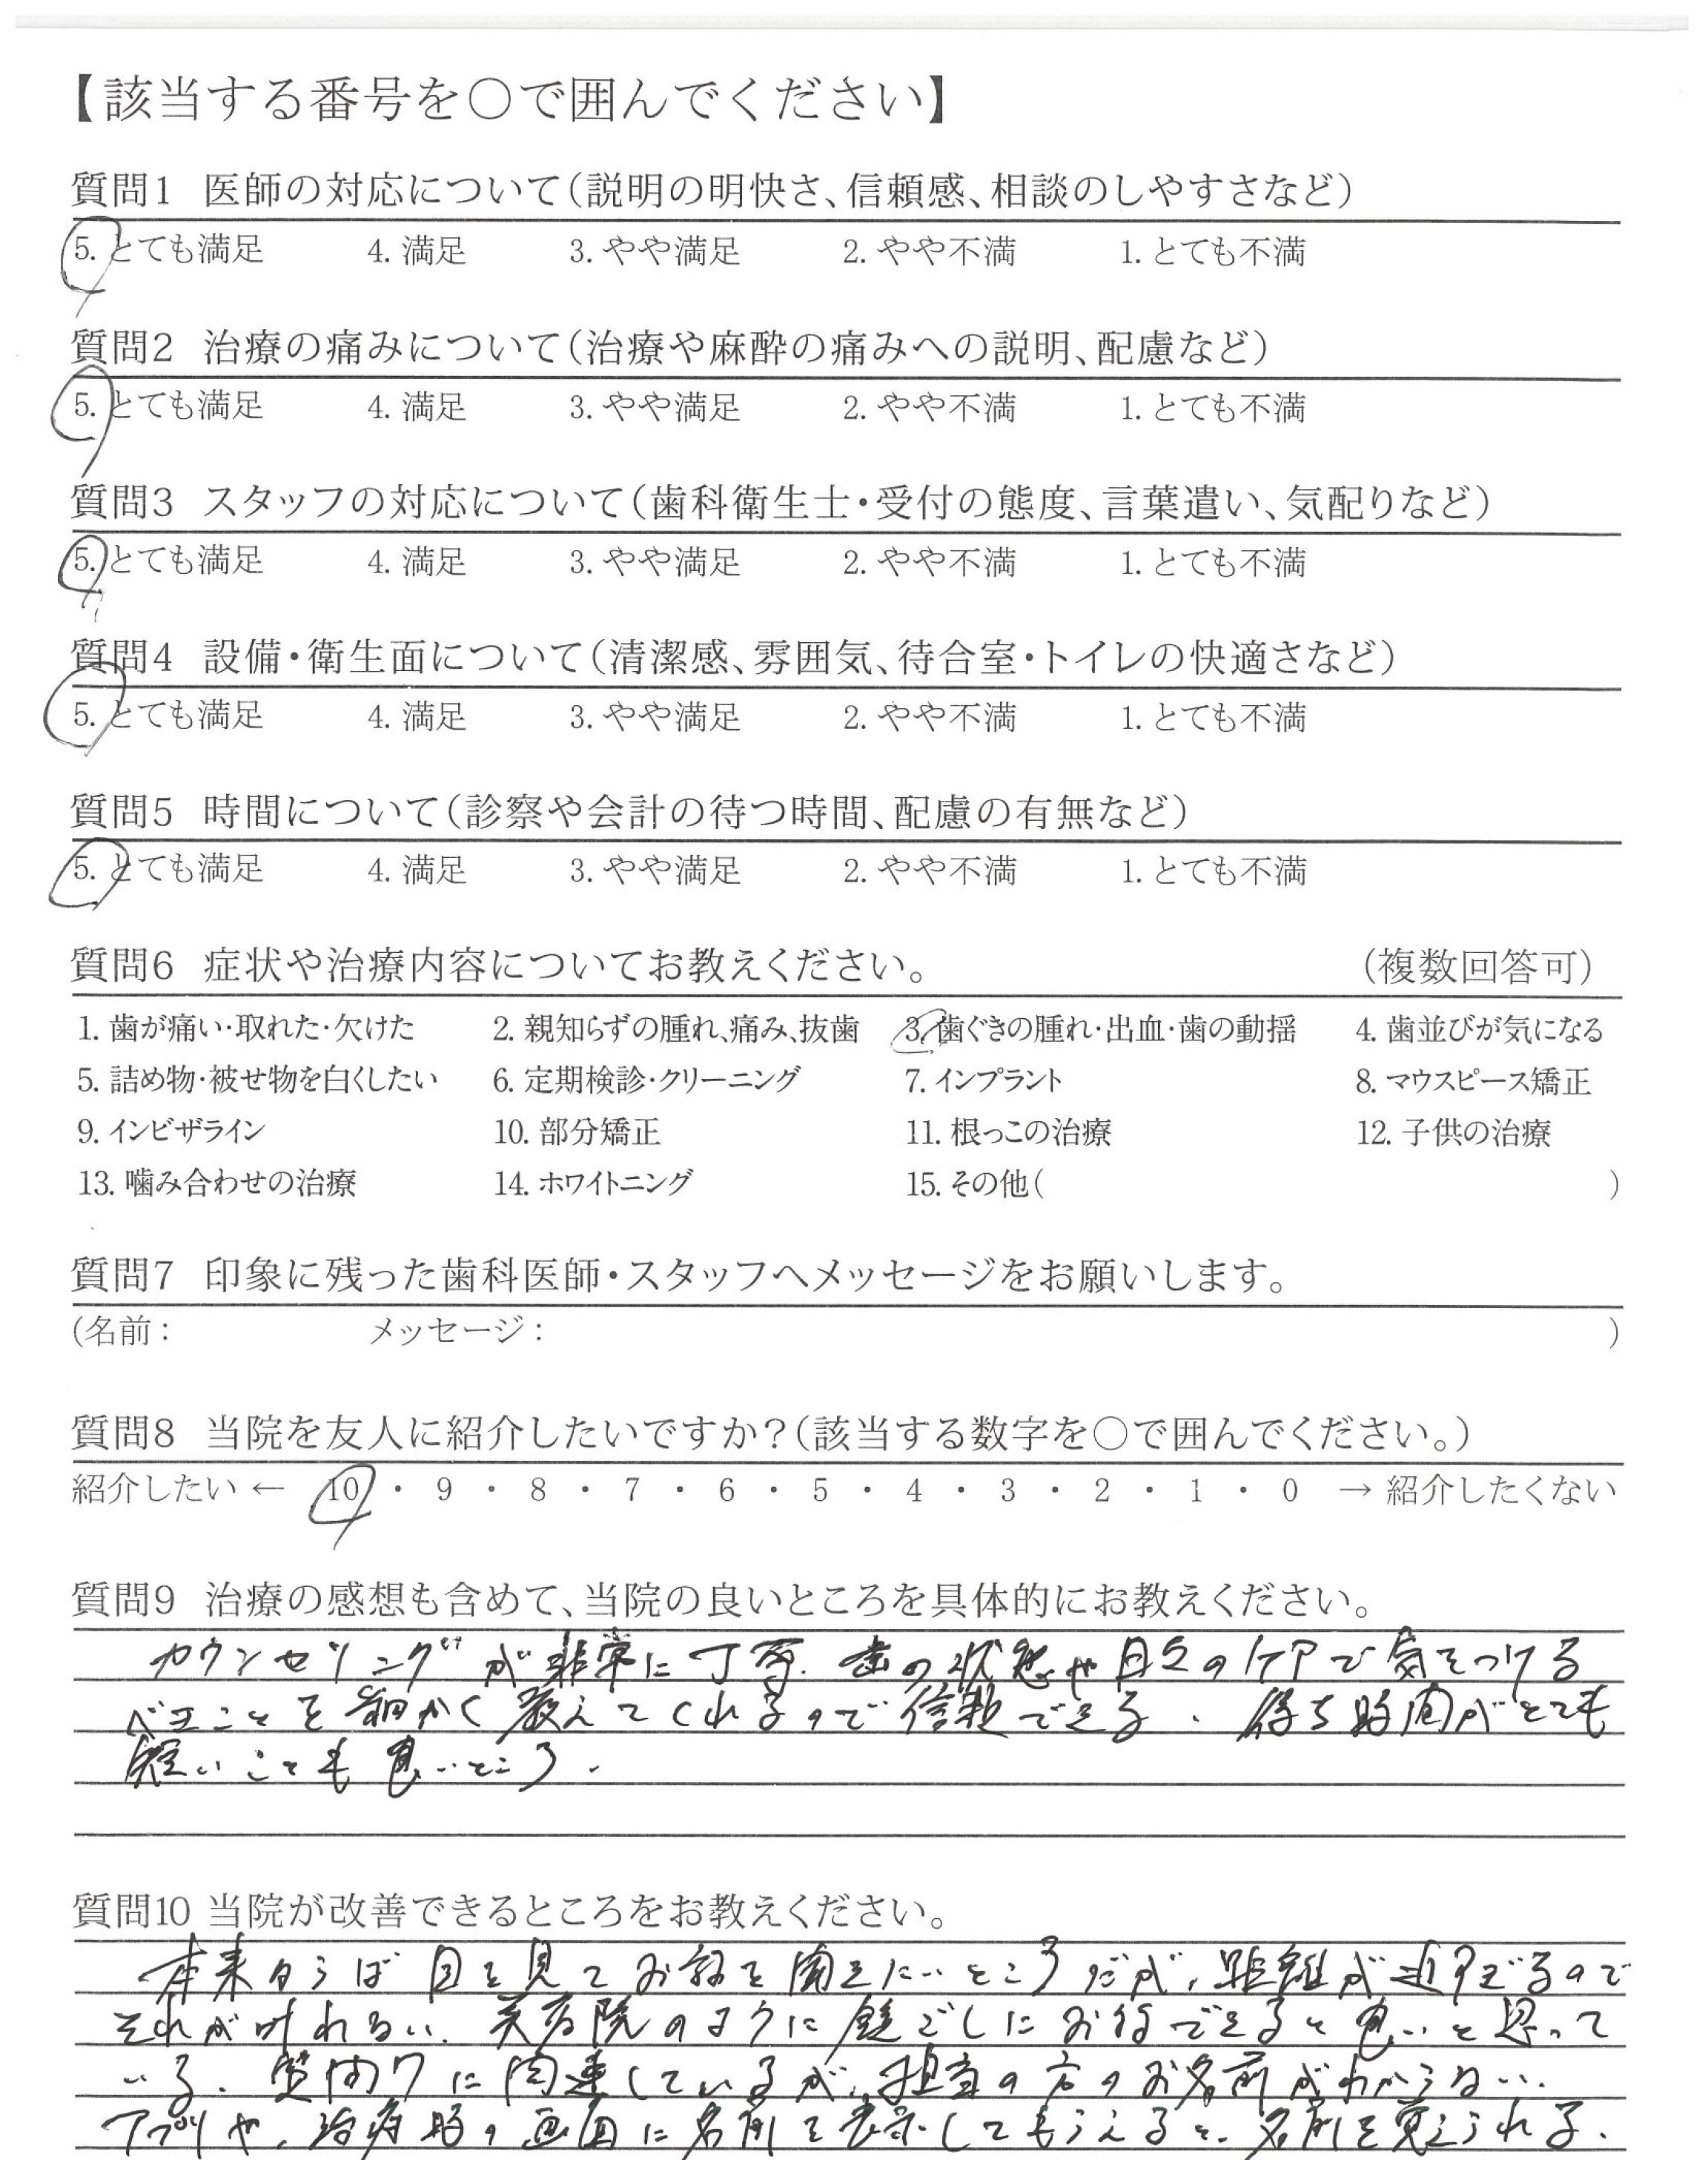 【該当する番号を〇で囲んでください】
質問1 医師の対応について(説明の明快さ、信頼感、相談のしやすさなど)
5. とても満足 4. 満足 3. やや満足 2. やや不満 1. とても不満
質問2 治療の痛みについて(治療や麻酔の痛みへの説明、配慮など)
5. とても満足 4. 満足 3. やや満足 2. やや不満 1. とても不満
質問3 スタッフの対応について(歯科衛生士・受付の態度、言葉遣い、気配りなど)
5. とても満足 4. 満足 3. やや満足 2. やや不満 1. とても不満
質問4 設備・衛生面について(清潔感、雰囲気、待合室・トイレの快適さなど)
5. とても満足 4. 満足 3. やや満足 2. やや不満 1. とても不満
質問5 時間について(診察や会計の待つ時間、配慮の有無など)
5. とても満足 4. 満足 3. やや満足 2. やや不満 1. とても不満
質問6 症状や治療内容についてお教えください。 (複数回答可)
1. 歯が痛い・取れた・欠けた 2. 親知らずの腫れ、痛み、抜歯 3. 歯ぐきの腫れ・出血・歯の動揺 4. 歯並びが気になる
5. 詰め物・被せ物を白くしたい 6. 定期検診・クリーニング 7. インプラント 8. マウスピース矯正
9. インビザライン 10. 部分矯正 11. 根っこの治療 12. 子供の治療
13. 噛み合わせの治療 14. ホワイトニング 15. その他( )
質問7 印象に残った歯科医師・スタッフへメッセージをお願いします。
(名前: メッセージ: )
質問8 当院を友人に紹介したいですか?(該当する数字を〇で囲んでください。)
紹介したい ← 10 ・ 9 ・ 8 ・ 7 ・ 6 ・ 5 ・ 4 ・ 3 ・ 2 ・ 1 ・ 0 → 紹介したくない
質問9 治療の感想も含めて、当院の良いところを具体的にお教えください。
カウンセリングが非常に丁寧. 歯の状態や日々のケアで気をつける
べきことを細かく教えてくれるので信頼できる. 待ち時間がとても
短いことも良いところ.
質問10 当院が改善できるところをお教えください。
本来ならば目を見てお話を聞きたいところだが, 距離が近すぎるので
それが叶わない. 美容院のように鏡ごしにお話できると良いと思って
いる. 質問7に関連しているが, 担当の方のお名前がわからない.
アプリや, 治療時の画面に名前を表示してもらえると, 名前を覚えられる.